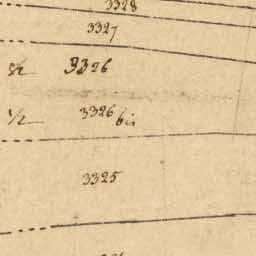 3328
3327
1/2 3326
1/2 3326 bis
3325